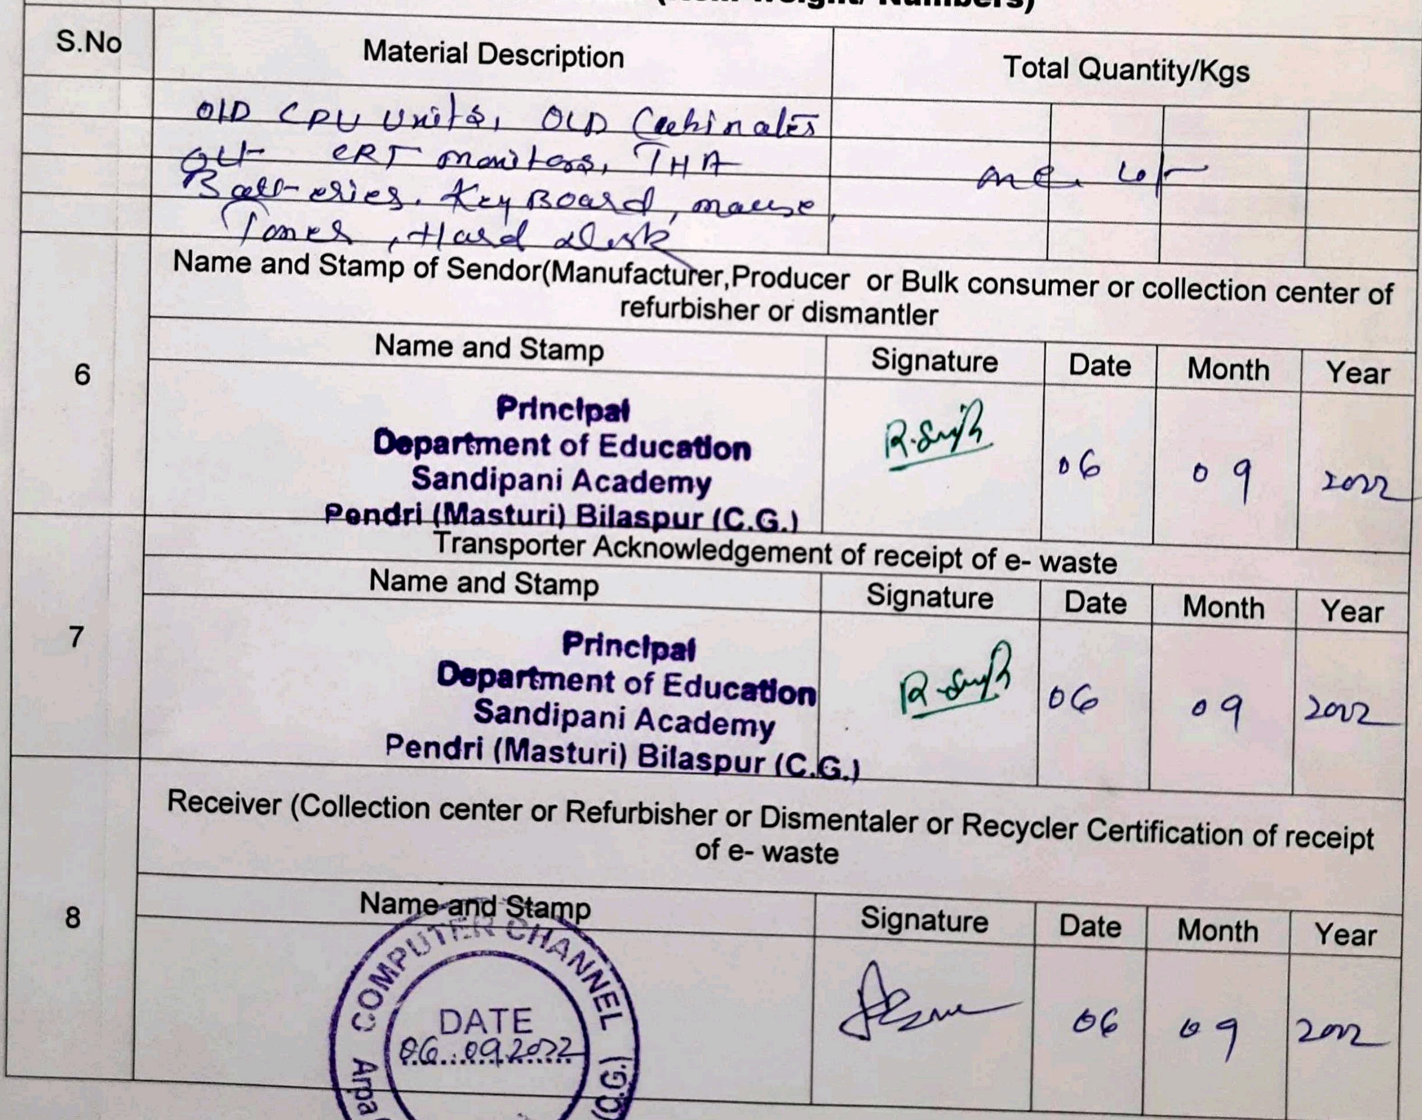 S.No Material Description Total Quantity/Kgs
OLD CPU Units, OLD Cabinates
CRT monitors, THA
Batt-eries. KeyBoard, mause,
Toner, Hard disk
one lot
Name and Stamp of Sendor(Manufacturer,Producer or Bulk consumer or collection center of
refurbisher or dismantler
6
Name and Stamp Signature Date Month Year
Principal
Department of Education
Sandipani Academy
Pendri (Masturi) Bilaspur (C.G.)
R. Singh 06 09 2022
Transporter Acknowledgement of receipt of e- waste
7
Name and Stamp Signature Date Month Year
Principal
Department of Education
Sandipani Academy
Pendri (Masturi) Bilaspur (C.G.)
R. Singh 06 09 2022
Receiver (Collection center or Refurbisher or Dismentaler or Recycler Certification of receipt
of e- waste
8
Name and Stamp Signature Date Month Year
COMPUTER CHANNEL
Arpa
DATE
06.09.2022
06 09 2022